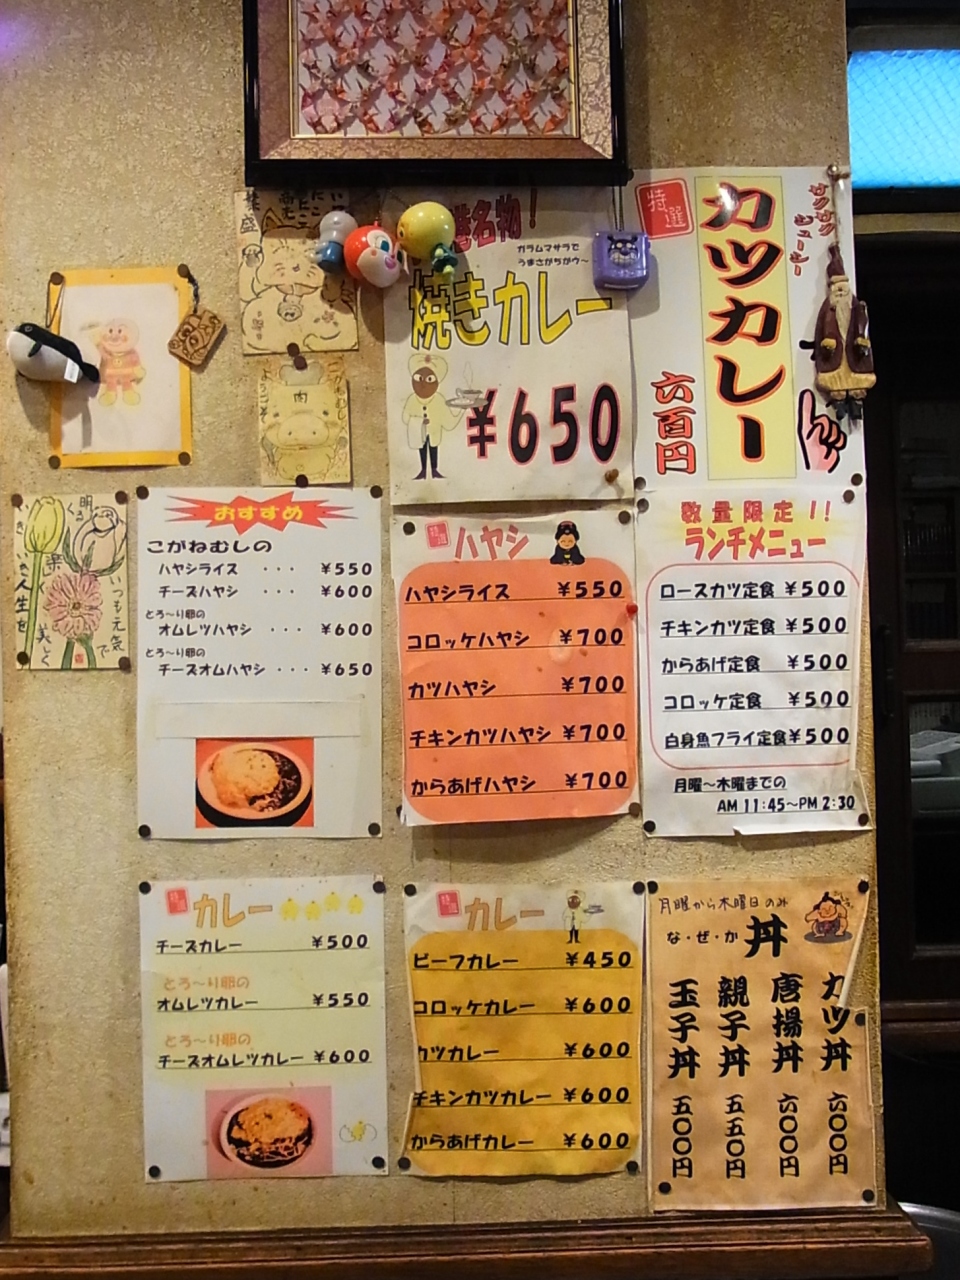 名物!
ガラムマサラで
うまさがちがウ〜
焼きカレー
¥650
特選
カツカレー
サクサク
ジューシー
六百円
肉
明るく
いつも元気で
楽しく
美しく
いきいき人生を
おすすめ
こがねむしの
ハヤシライス ・・・ ¥550
チーズハヤシ ¥600
とろ〜り卵の
オムレツハヤシ ・・・ ¥600
とろ〜り卵の
チーズオムハヤシ ・・・ ¥650
特選
ハヤシ
ハヤシライス ¥550
コロッケハヤシ ¥700
カツハヤシ ¥700
チキンカツハヤシ ¥700
からあげハヤシ ¥700
数量限定!!
ランチメニュー
ロースカツ定食 ¥500
チキンカツ定食 ¥500
からあげ定食 ¥500
コロッケ定食 ¥500
白身魚フライ定食 ¥500
月曜〜木曜までの
AM 11:45〜PM 2:30
特選
カレー
チーズカレー ¥500
とろ〜り卵の
オムレツカレー ¥550
とろ〜り卵の
チーズオムレツカレー ¥600
特選
カレー
ビーフカレー ¥450
コロッケカレー ¥600
カツカレー ¥600
チキンカツカレー ¥600
からあげカレー ¥600
月曜から木曜日のみ
な・ぜ・か丼
カツ丼 六〇〇円
唐揚丼 六〇〇円
親子丼 五五〇円
玉子丼 五〇〇円